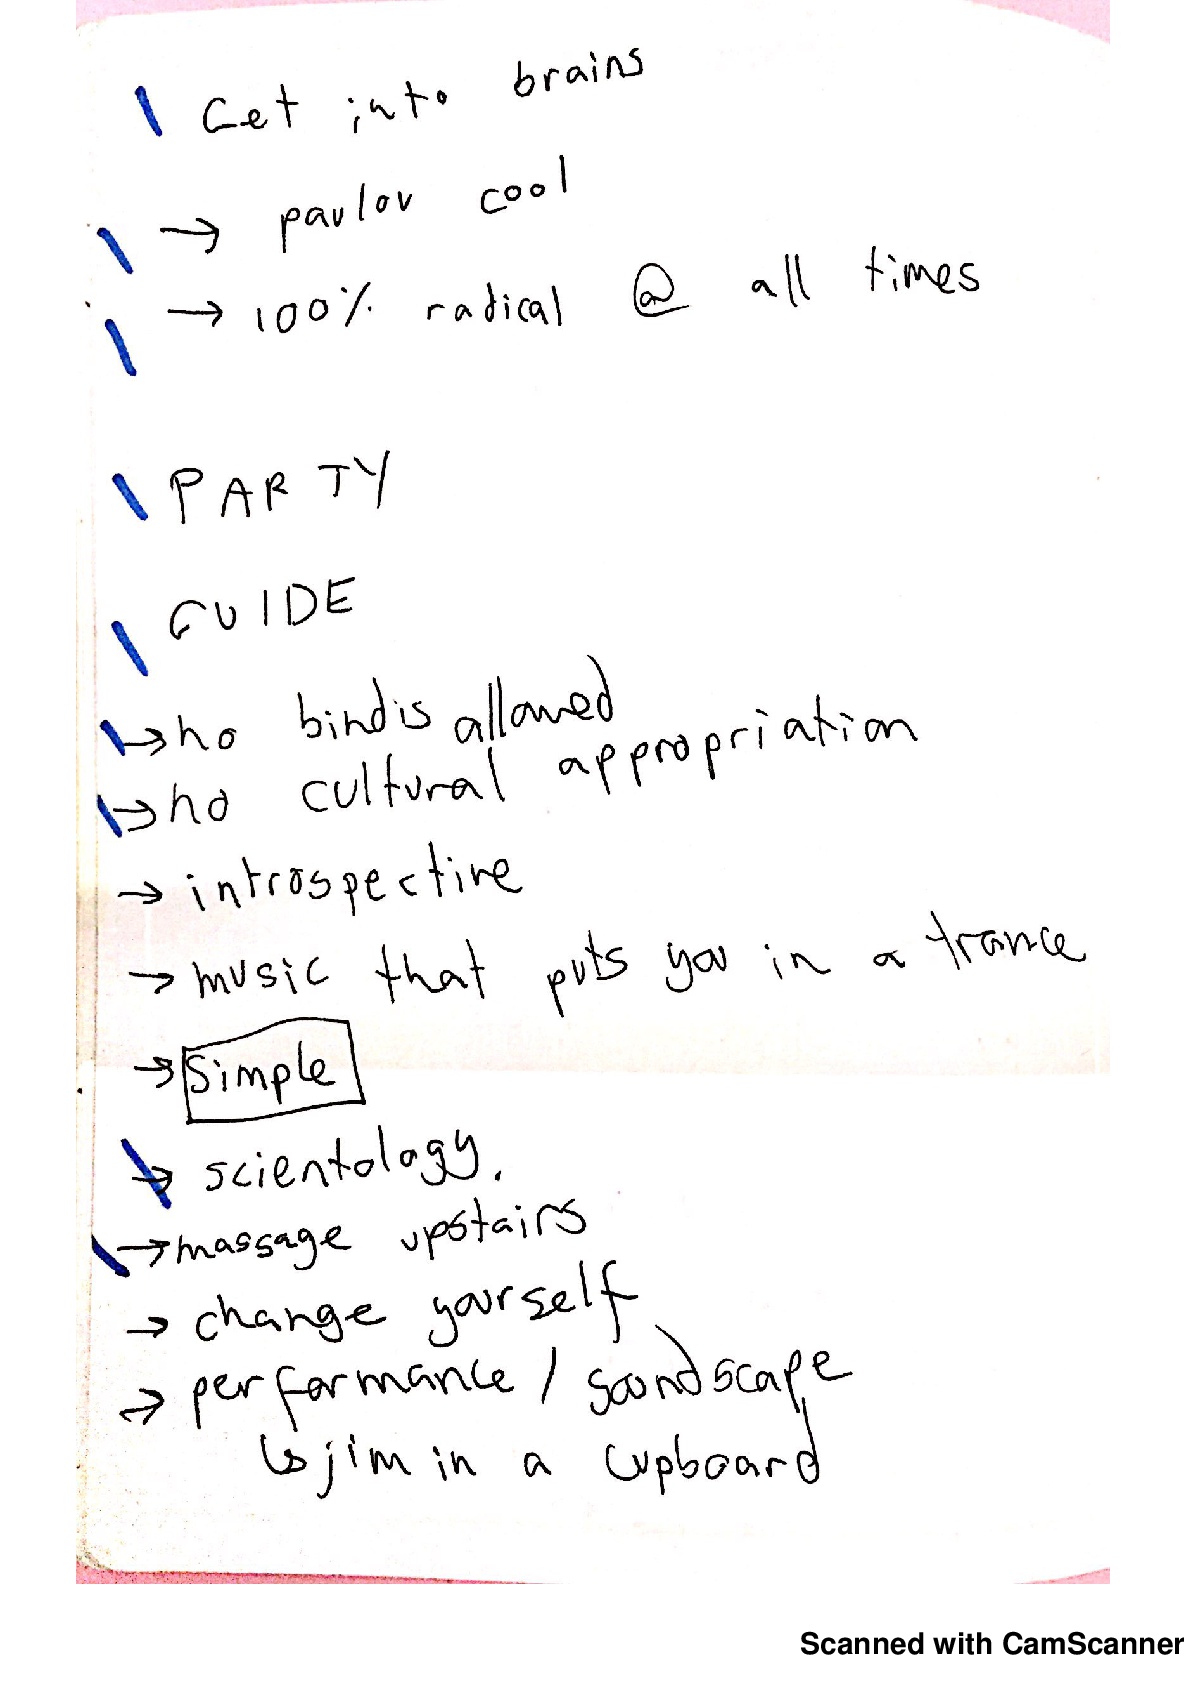 Get into brains
→ pavlov cool
→ 100% radical @ all times
PARTY
GUIDE
→ no bindis allowed
→ no cultural appropriation
→ introspective
→ music that puts you in a trance
→ Simple
→ scientology.
→ massage upstairs
→ change yourself
→ performance / soundscape
↳ jim in a cupboard
Scanned with CamScanner